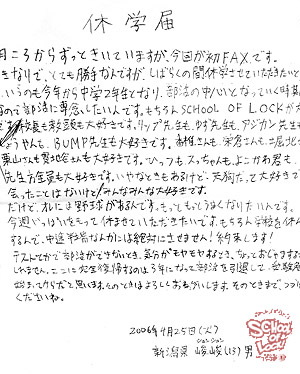 休学届
日ころからずっときいていますが、今回が初FAXです。
きなりで、とても勝手なんですが、しばらくの間休学させていただきたいと
いうのも今年から中学2年生となり、部活の中心となっていく時期
なので部活に専念したいんです。もちろんSCHOOL OF LOCKが大
教頭も大好きです。リップ先生も、ゆず先生も、アジカン先生も
ちゃんも、BUMP先生も大好きです。
栗山さんも貫地谷さんも大好きです。ひっつも、スっちゃんも、よこかわ君も、
先生方全員も大好きです。いやなときもあるけど、天狗だって大好きで
会ったことはないけどみんなみんな大好きです。
だけど、オレには野球があるんです。もっともっとうまくなりたいんです。
今週いっぱいをもって休ませていただきたいです。もちろん学校を休ん
するんで、中途半端なんかには絶対にさせません!約束します!
テストとかで部活ができないとき、気分がモヤモヤするとき、ちょっとおじゃまするか
しれません。ここに完全復帰するのは、3年になって部活を引退して、受験勉
始まってからだと思います。そのときはよろしくおねがいします。そのときまで、つづい
くださいね。
2006年4月25日(火)
シュンシュン
新潟県 峻峻(13)男
SCHOOL OF LOCK!